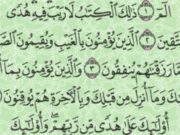 الٓمٓ ١ ذَٰلِكَ ٱلْكِتَٰبُ لَا رَيْبَ فِيهِ هُدًى
تَّقِينَ ٢ ٱلَّذِينَ يُؤْمِنُونَ بِٱلْغَيْبِ وَيُقِيمُونَ ٱلصَّ
مَّا رَزَقْنَٰهُمْ يُنفِقُونَ ٣ وَٱلَّذِينَ يُؤْمِنُونَ بِمَآ أُ
كَ وَمَآ أُنزِلَ مِن قَبْلِكَ وَبِٱلْءَاخِرَةِ هُمْ يُوقِنُونَ
أُو۟لَٰٓئِكَ عَلَىٰ هُدًى مِّن رَّبِّهِمْ ۖ وَأُو۟لَٰٓئِكَ